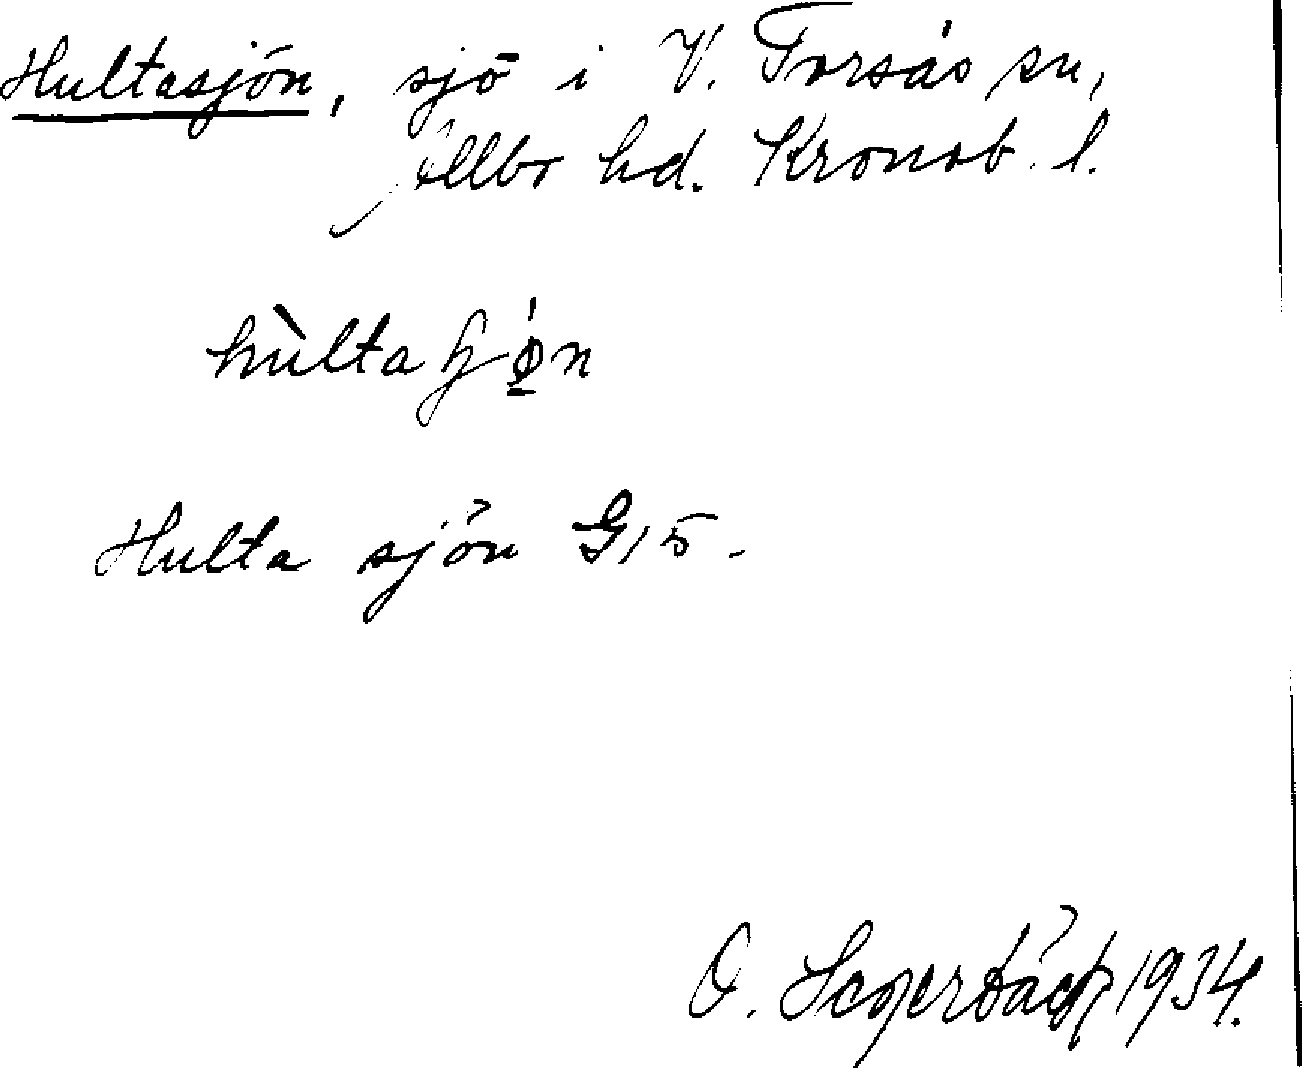 Hultasjön, sjö i V. Torsås sn,
Allbo hd. Kronob. l.
hùltaɧǿn
Hulta sjön G15.
O. Sagerbäck 1934.